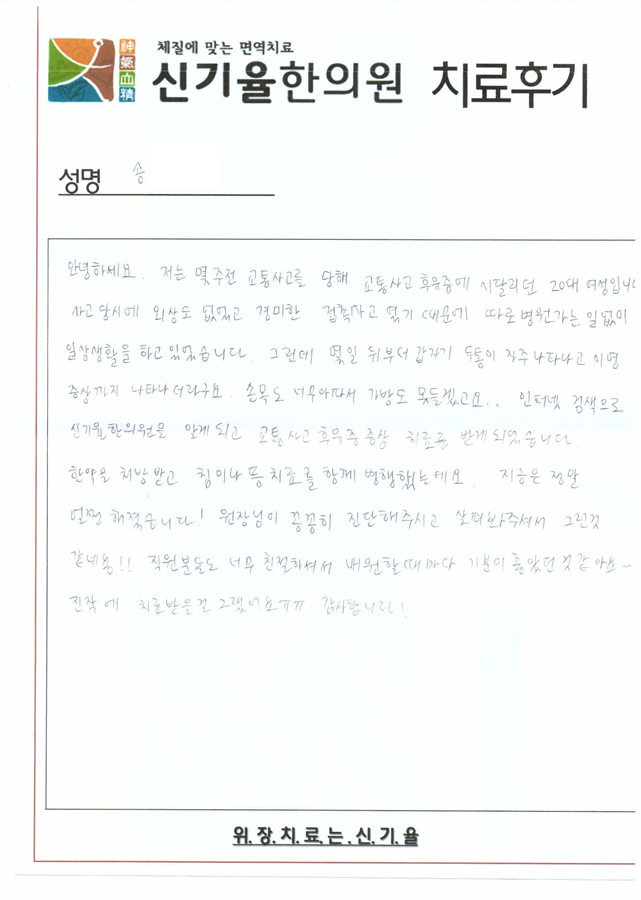 神氣血精
체질에 맞는 면역치료
신기율한의원 치료후기
성명 송
안녕하세요. 저는 몇주전 교통사고를 당해 교통사고 후유증에 시달리던 20대 여성입니
사고 당시에 외상도 없었고 경미한 접촉사고 였기 때문에 따로 병원가는 일없이
일상생활을 하고 있었습니다. 그런데 몇일 뒤부터 갑자기 두통이 자주 나타나고 이명
증상까지 나타나더라구요. 손목도 너무아파서 가방도 못들겠고요.. 인터넷 검색으로
신기율한의원을 알게되고 교통사고 후유증 증상 치료를 받게 되었습니다.
한약을 처방받고 침이나 뜸치료를 함께 병행했는데요. 지금은 정말
멀쩡해졌습니다! 원장님이 꼼꼼히 진단해주시고 살펴봐주셔서 그런것
같네용!! 직원분들도 너무 친절하셔서 내원할때마다 기분이 좋았던것 같아요~
진작에 치료받을걸 그랬어요ㅠㅠ 감사합니다!
위.장.치.료.는.신.기.율